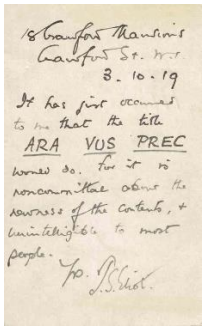 18 Crawford Mansions
Crawford St. W.1.
3.10.19
It has just occurred
to me that the title
ARA VUS PREC
would do. For it is
noncommittal about the
newness of the contents, &
unintelligible to most
people.
Yrs.
T.S. Eliot.